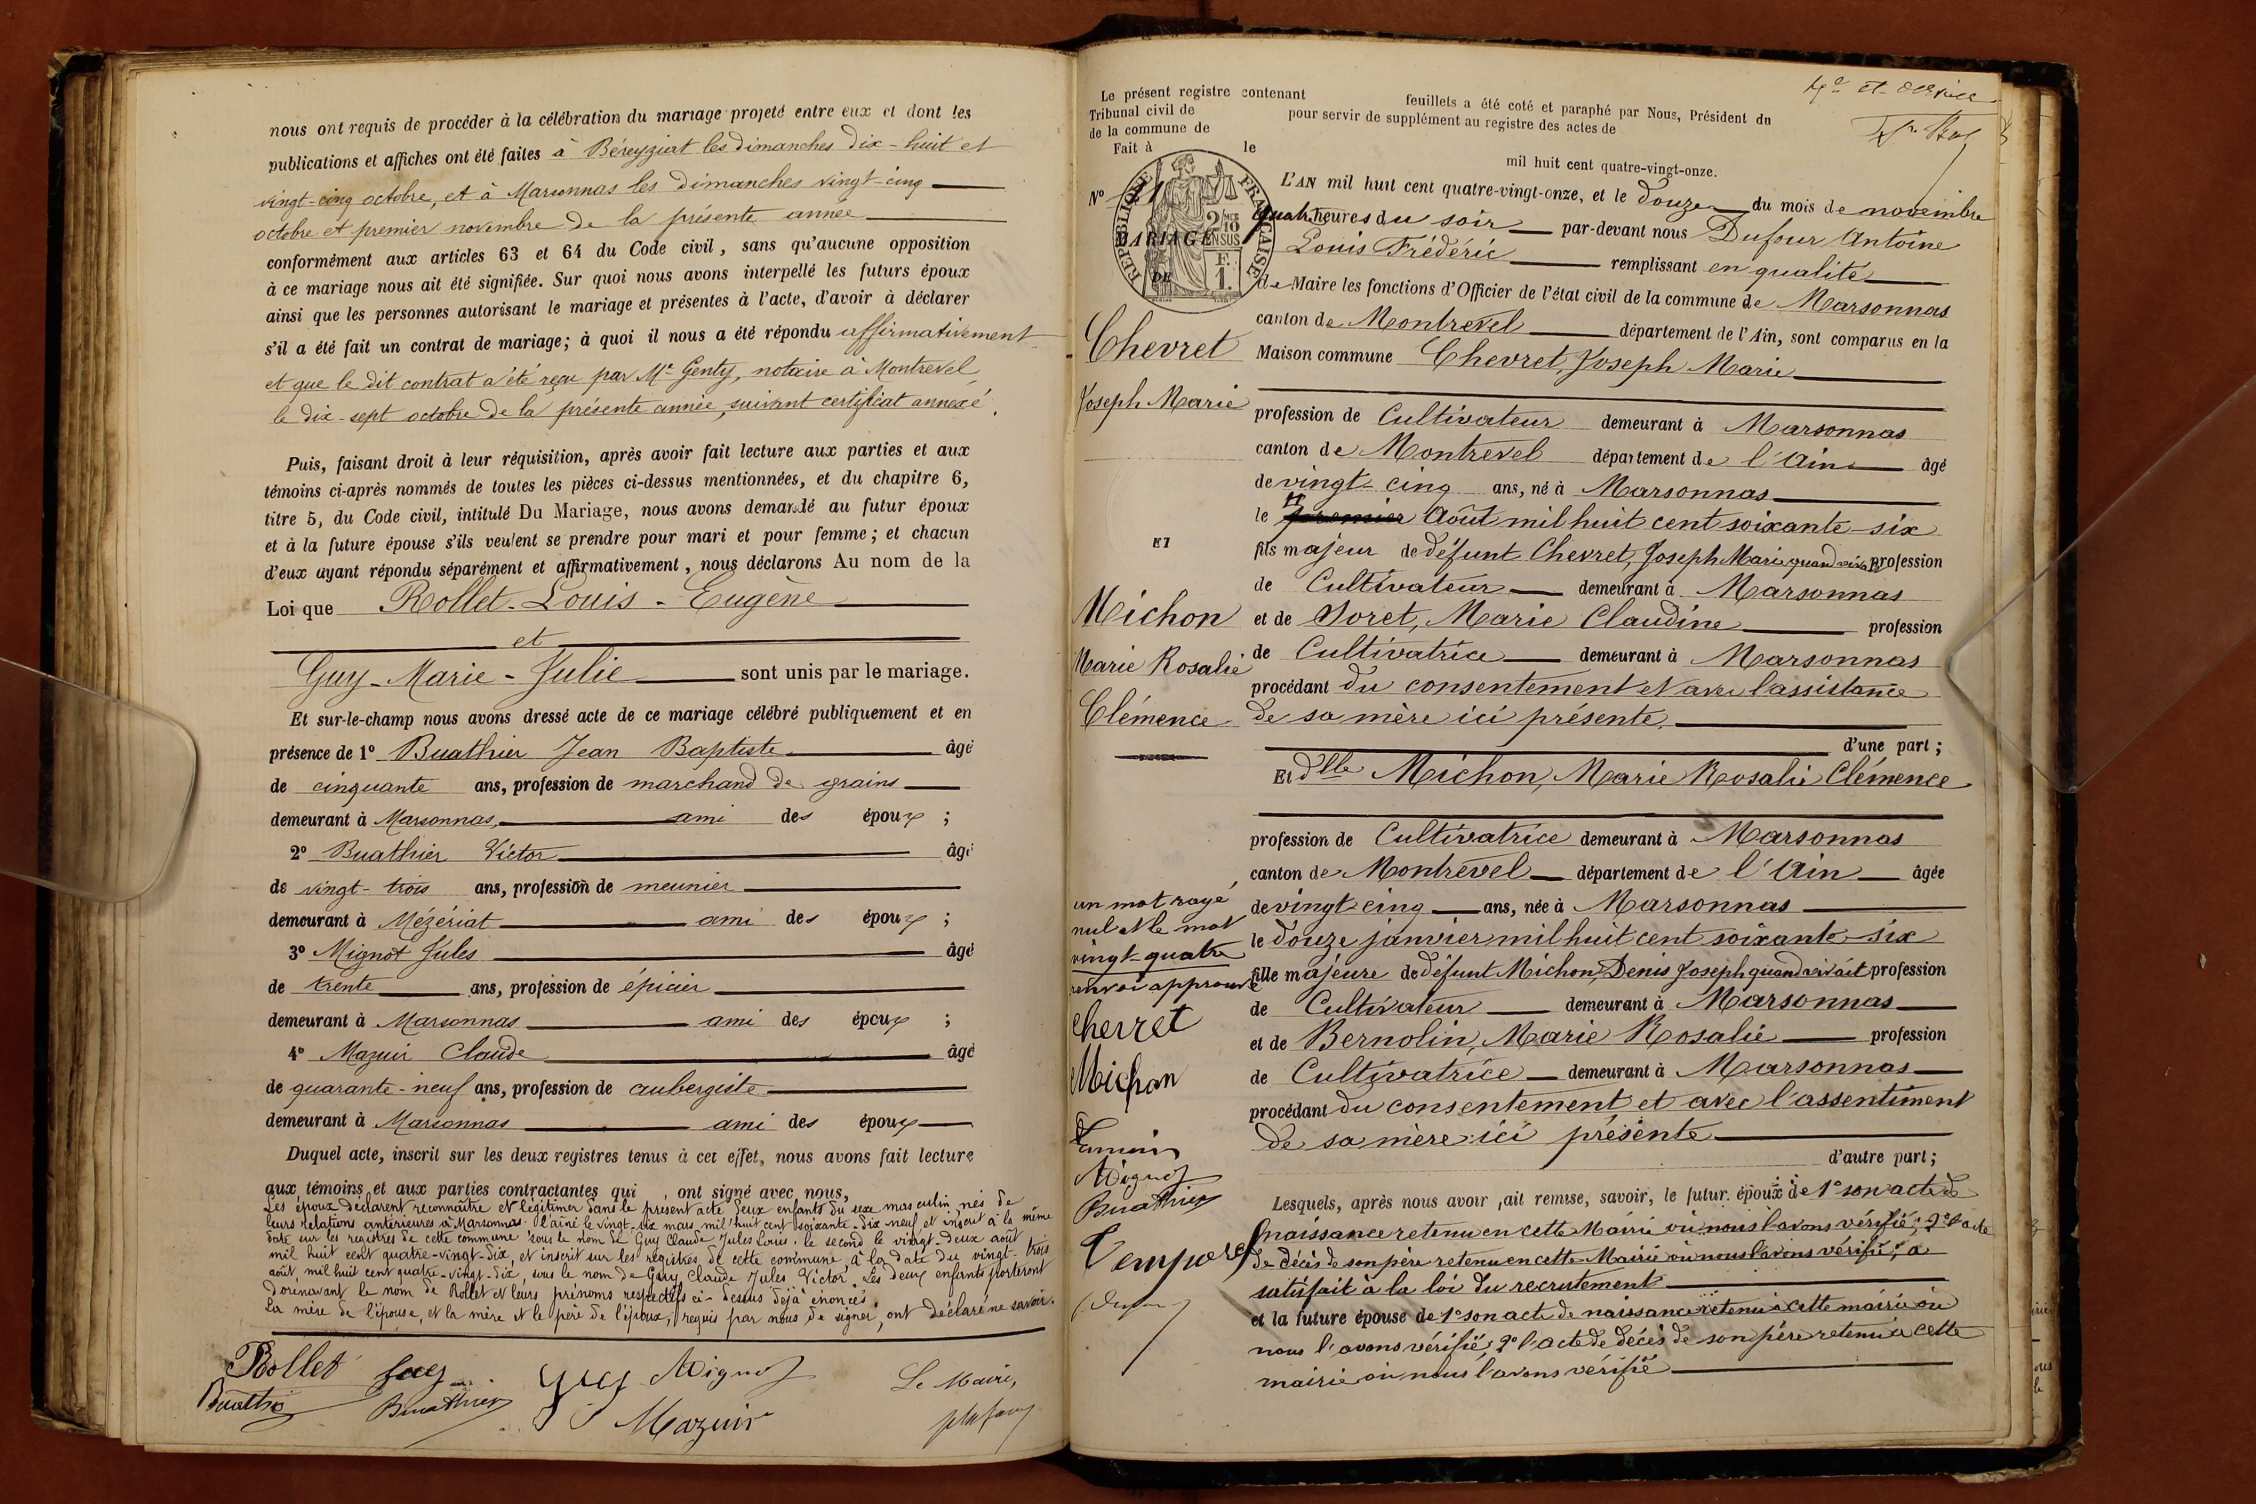 nous ont requis de procéder à la célébration du mariage projeté entre eux et dont les
publications et affiches ont été faites à Béreyziat les dimanches dix-huit et
vingt-cinq octobre, et à Marsonnas les dimanches vingt-cinq
octobre et premier novembre de la présente année
conformément aux articles 63 et 64 du Code civil, sans qu'aucune opposition
à ce mariage nous ait été signifiée. Sur quoi nous avons interpellé les futurs époux
ainsi que les personnes autorisant le mariage et présentes à l'acte, d'avoir à déclarer
s'il a été fait un contrat de mariage; à quoi il nous a été répondu affirmativement
et que le dit contrat a été reçu par Me Genty, notaire à Montrevel
le dix-sept octobre de la présente année, suivant certificat annexé.
Puis, faisant droit à leur réquisition, après avoir fait lecture aux parties et aux
témoins ci-après nommés de toutes les pièces ci-dessus mentionnées, et du chapitre 6,
titre 5, du Code civil, intitulé Du Mariage, nous avons demandé au futur époux
et à la future épouse s'ils veulent se prendre pour mari et pour femme; et chacun
d'eux ayant répondu séparément et affirmativement, nous déclarons Au nom de la
Loi que Rollet-Louis-Eugène
et
Guy-Marie-Julie sont unis par le mariage.
Et sur-le-champ nous avons dressé acte de ce mariage célébré publiquement et en
présence de 1° Buathier Jean Baptiste âgé
de cinquante ans, profession de marchand de grains
demeurant à Marsonnas, ami des époux ;
2° Buathier Victor âgé
de vingt-trois ans, profession de meunier
demeurant à Mézériat ami des époux ;
3° Mignot Jules âgé
de trente ans, profession de épicier
demeurant à Marsonnas ami des époux ;
4° Mazuir Claude âgé
de quarante-neuf ans, profession de aubergiste
demeurant à Marsonnas ami des époux
Duquel acte, inscrit sur les deux registres tenus à cet effet, nous avons fait lecture
aux témoins et aux parties contractantes qui ont signé avec nous,
Les époux déclarent reconnaître et légitimer dans le présent acte deux enfants du sexe masculin nés de
leurs relations antérieures à Marsonnas. l'aîné le vingt-six mars mil huit cent soixante-dix neuf, et inscrit à la même
date sur les registres de cette commune sous le nom de Guy Claude Jules Louis, le second le vingt-deux août
mil huit cent quatre-vingt-dix, et inscrit sur les registres de cette commune, à la date du vingt-trois
août, mil huit cent quatre-vingt-dix, sous le nom de Guy Claude Jules Victor. Les deux enfants porteront
dorénavant le nom de Rollet et leurs prénoms respectifs ci-dessus déjà énoncés.
La mère de l'épouse, et la mère et le père de l'époux, requis par nous de signer, ont déclaré ne savoir.
Rollet Guy Guy Mignot Le Maire,
Buathier Buathier Mazuir
Le présent registre contenant feuillets a été coté et paraphé par Nous, Président du
Tribunal civil de pour servir de supplément au registre des actes de
de la commune de
Fait à le mil huit cent quatre-vingt-onze.
N°
RÉPUBLIQUE FRANÇAISE
2/10 EN SUS
F. 1.
MARIAGE
DE
Chevret
Joseph Marie
ET
Michon
Marie Rosalie
Clémence
un mot rayé
nul et le mot
vingt-quatre
renvoi approuvé
Chevret
Michon
Mignot
Buathier
L'AN mil huit cent quatre-vingt-onze, et le douze du mois de novembre
quatre heures du soir par-devant nous Dufour Antoine
Louis Frédéric remplissant en qualité
de Maire les fonctions d'Officier de l'état civil de la commune de Marsonnas
canton de Montrevel département de l'Ain, sont comparus en la
Maison commune Chevret, Joseph Marie
profession de Cultivateur demeurant à Marsonnas
canton de Montrevel département de l'Ain âgé
de vingt-cinq ans, né à Marsonnas
le premier Août mil huit cent soixante-six
fils majeur de défunt Chevret, Joseph Marie quand vivait profession
de Cultivateur demeurant à Marsonnas
et de Soret, Marie Claudine profession
de Cultivatrice demeurant à Marsonnas
procédant du consentement et avec l'assistance
de sa mère ici présente.
d'une part;
Et dlle Michon, Marie Rosalie Clémence
profession de Cultivatrice demeurant à Marsonnas
canton de Montrevel département de l'Ain âgée
de vingt cinq ans, née à Marsonnas
le douze janvier mil huit cent soixante-six
fille majeure de défunt Michon, Denis Joseph quand vivait profession
de Cultivateur demeurant à Marsonnas
et de Bernolin, Marie Rosalie profession
de Cultivatrice demeurant à Marsonnas
procédant du consentement et avec l'assentiment
de sa mère ici présente
d'autre part;
Lesquels, après nous avoir fait remise, savoir, le futur époux de 1° son acte de
naissance retenu en cette Mairie où nous l'avons vérifié; 2° l'acte
de décès de son père retenu en cette Mairie où nous l'avons vérifié; a
satisfait à la loi du recrutement
et la future épouse de 1° son acte de naissance retenu à cette mairie où
nous l'avons vérifié; 2° l'acte de décès de son père retenu à cette
mairie où nous l'avons vérifié